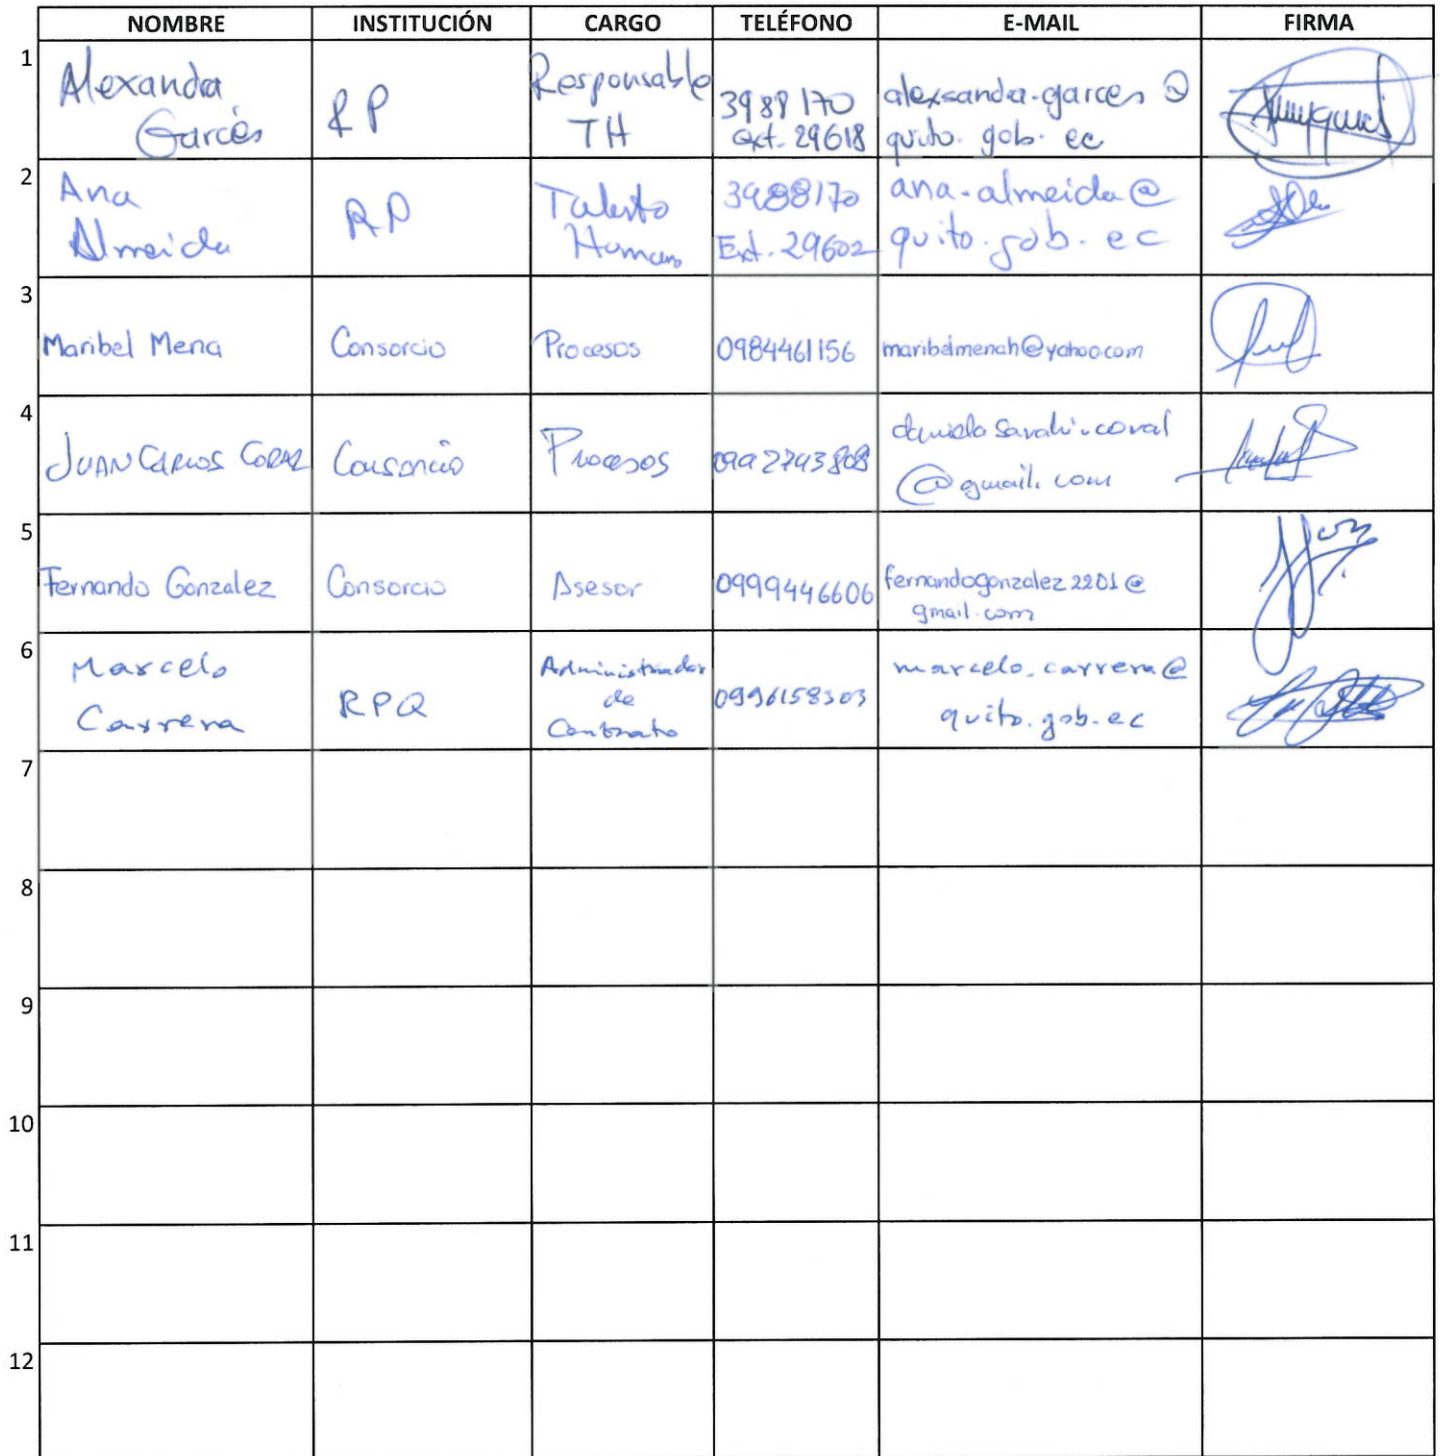 NOMBRE INSTITUCIÓN CARGO TELÉFONO E-MAIL FIRMA
1
Alexandra
Garcés
RP
Responsable
TH
3988170
ext. 29618
alexsandra.garces@
quito.gob.ec
2
Ana
Almeida
RP
Talento
Humano
3988170
Ext. 29602
ana.almeida@
quito.gob.ec
3
Maribel Mena
Consorcio
Procesos
0984461156
maribelmenah@yahoo.com
4
JUAN CARLOS CORAL
Consorcio
Procesos
0992743808
@gmail.com
5
Fernando Gonzalez
Consorcio
Asesor
0999446606
fernandogonzalez2201@
gmail.com
6
Marcelo
Carrera
RPQ
Administrador
de
Contrato
0996158303
marcelo.carrera@
quito.gob.ec
7
8
9
10
11
12